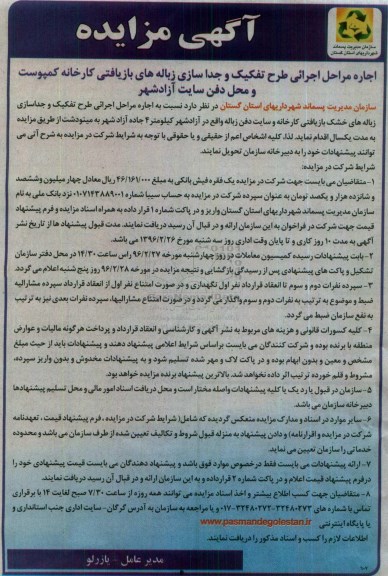 سازمان مدیریت پسماند
شهرداریهای استان گلستان
آگهی مزایده
اجاره مراحل اجرائی طرح تفکیک و جدا سازی زباله های بازیافتی کارخانه کمپوست
و محل دفن سایت آزادشهر
سازمان مدیریت پسماند شهرداریهای استان گلستان در نظر دارد نسبت به اجاره مراحل اجرائی طرح تفکیک و جداسازی
زباله های خشک بازیافتی کارخانه و سایت دفن زباله واقع در آزادشهر کیلومتر ۴ جاده آزاد شهر به مینودشت از طریق مزایده
به مدت یکسال اقدام نماید. لذا، کلیه اشخاص اعم از حقیقی و یا حقوقی با توجه به شرایط شرکت در مزایده به شرح آتی می
توانند پیشنهادات خود را به دبیرخانه سازمان تحویل نمایند.
شرایط شرکت در مزایده:
۱- متقاضیان می بایست جهت شرکت در مزایده یک فقره فیش بانکی به مبلغ ۴۶/۱۶۱/۰۰۰ ریال معادل چهار میلیون وششصد
و شانزده هزار و یکصد تومان به عنوان سپرده شرکت در مزایده به حساب سیبا شماره ۰۱۰۷۱۴۳۸۸۹۰۰۱ نزد بانک ملی به نام
سازمان مدیریت پسماند شهرداریهای استان گلستان واریز و در پاکت شماره ۱ قرار داده به همراه اسناد مزایده و فرم پیشنهاد
قیمت جهت شرکت در فراخوان به این سازمان ارائه و در قبال آن رسید دریافت نمایند. مدت قبول پیشنهاد ها از تاریخ نشر
آگهی به مدت ۱۰ روز کاری و تا پایان وقت اداری روز سه شنبه مورخ ۱۳۹۶/۲/۲۶ می باشد.
۲- بابت پیشنهادات رسیده کمیسیون معاملات در روز چهارشنبه مورخه ۹۶/۲/۲۷ راس ساعت ۱۴/۳۰ در محل دفتر سازمان
تشکیل و پاکت های پیشنهادی پس از رسیدگی بازگشایی و نتیجه مزایده در مورخه ۹۶/۲/۲۸ روز پنج شنبه اعلام می گردد.
۳- سپرده نفرات دوم و سوم تا انعقاد قرارداد نفر اول نگهداری و در صورت امتناع نفر اول از انعقاد قرارداد سپرده مشارالیه
ضبط و موضوع به ترتیب به نفرات دوم و سوم واگذار می گردد و در صورت امتناع مشارالیها، سپرده نفرات بعدی نیز به ترتیب
به نفع سازمان ضبط می گردد.
۴- کلیه کسورات قانونی و هزینه های مربوط به نشر آگهی و کارشناسی و انعقاد قرارداد و پرداخت هرگونه مالیات و عوارض
منطقه با برنده بوده و شرکت کنندگان می بایست براساس شرایط اعلامی پیشنهاد دهند و پیشنهادات باید از حیث مبلغ
مشخص و معین و بدون ابهام بوده و در پاکت لاک و مهر شده تسلیم شود و به پیشنهادات مخدوش و بدون واریز سپرده،
مشروط و قلم خورده ترتیب اثر داده نخواهد شد. بالاترین پیشنهاد برنده مزایده خواهد بود.
۵- سازمان در قبول یا رد یک یا کلیه پیشنهادات واصله مختار است و محل دریافت اسناد امور مالی و محل تسلیم پیشنهادها
دبیرخانه سازمان می باشد.
۶- سایر موارد در اسناد و مدارک مزایده منعکس گردیده که شامل( شرایط شرکت در مزایده ، فرم پیشنهاد قیمت ، تعهدنامه
شرکت در مزایده و اقرارنامه) و دادن پیشنهاد به منزله قبول شروط و تکالیف تعیین شده از طرف سازمان می باشد و محدوده
خدماتی را سازمان تعیین می نماید.
۷- ارائه پیشنهادات می بایست فقط در خصوص موارد فوق باشد و پیشنهاد دهندگان می بایست قیمت پیشنهادی خود را
درفرم پیشنهاد قیمت اعلام و در پاکت شماره ۲ قرارداده و به این سازمان ارائه و در قبال آن رسید دریافت نمایند.
۸- متقاضیان جهت کسب اطلاع بیشتر و اخذ اسناد مزایده می توانند همه روزه از ساعت ۷/۳۰ صبح لغایت ۱۴ با برقراری
تماس با شماره های ۳۲۴۸۰۲۷۳-۳۲۴۸۰۲۷۲-۰۱۷ و یا مراجعه به سازمان به آدرس گرگان- سایت اداری جنب استانداری و
یا پایگاه اینترنتی www.pasmandegolestan.ir
اطلاعات لازم را کسب و اسناد مذکور را دریافت نمایند.
مدیر عامل - یازرلو